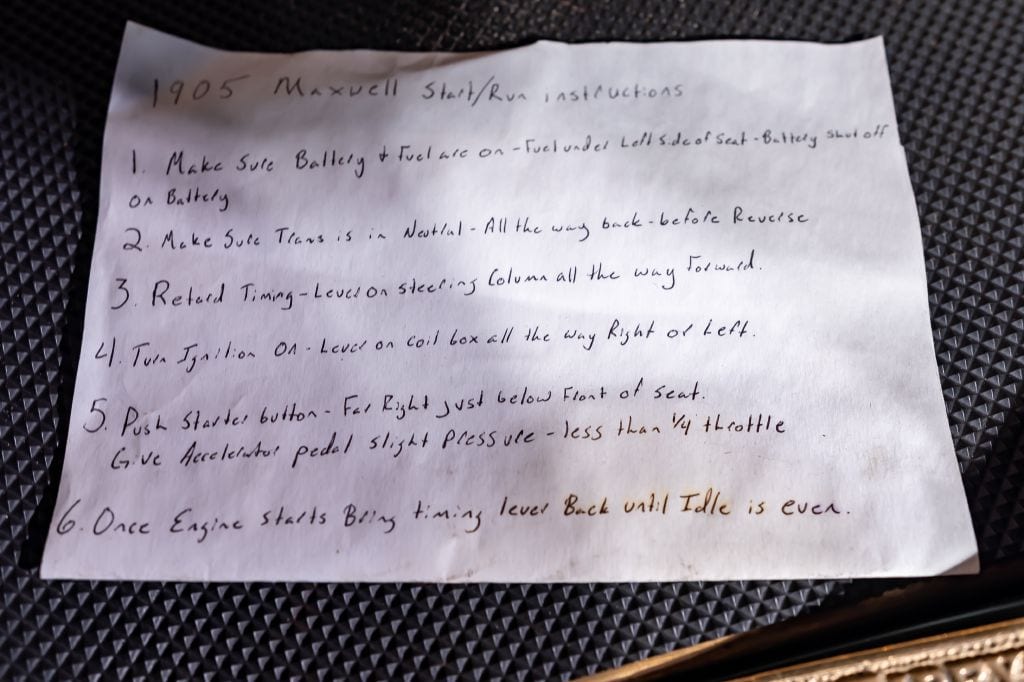 1905 Maxwell Start/Run instructions
1. Make Sure Battery + Fuel are on - Fuel under Left Side of Seat - Battery Shut off
on Battery
2. Make Sure Trans is in Neutral - All the way back - before Reverse
3. Retard Timing - Lever on steering Column all the way Forward.
4. Turn Ignition On - Lever on coil box all the way Right or Left.
5. Push Starter button - Far Right just below Front of seat.
Give Accelerator pedal slight Pressure - less than 1/4 throttle
6. Once Engine starts Bring timing lever Back until Idle is even.